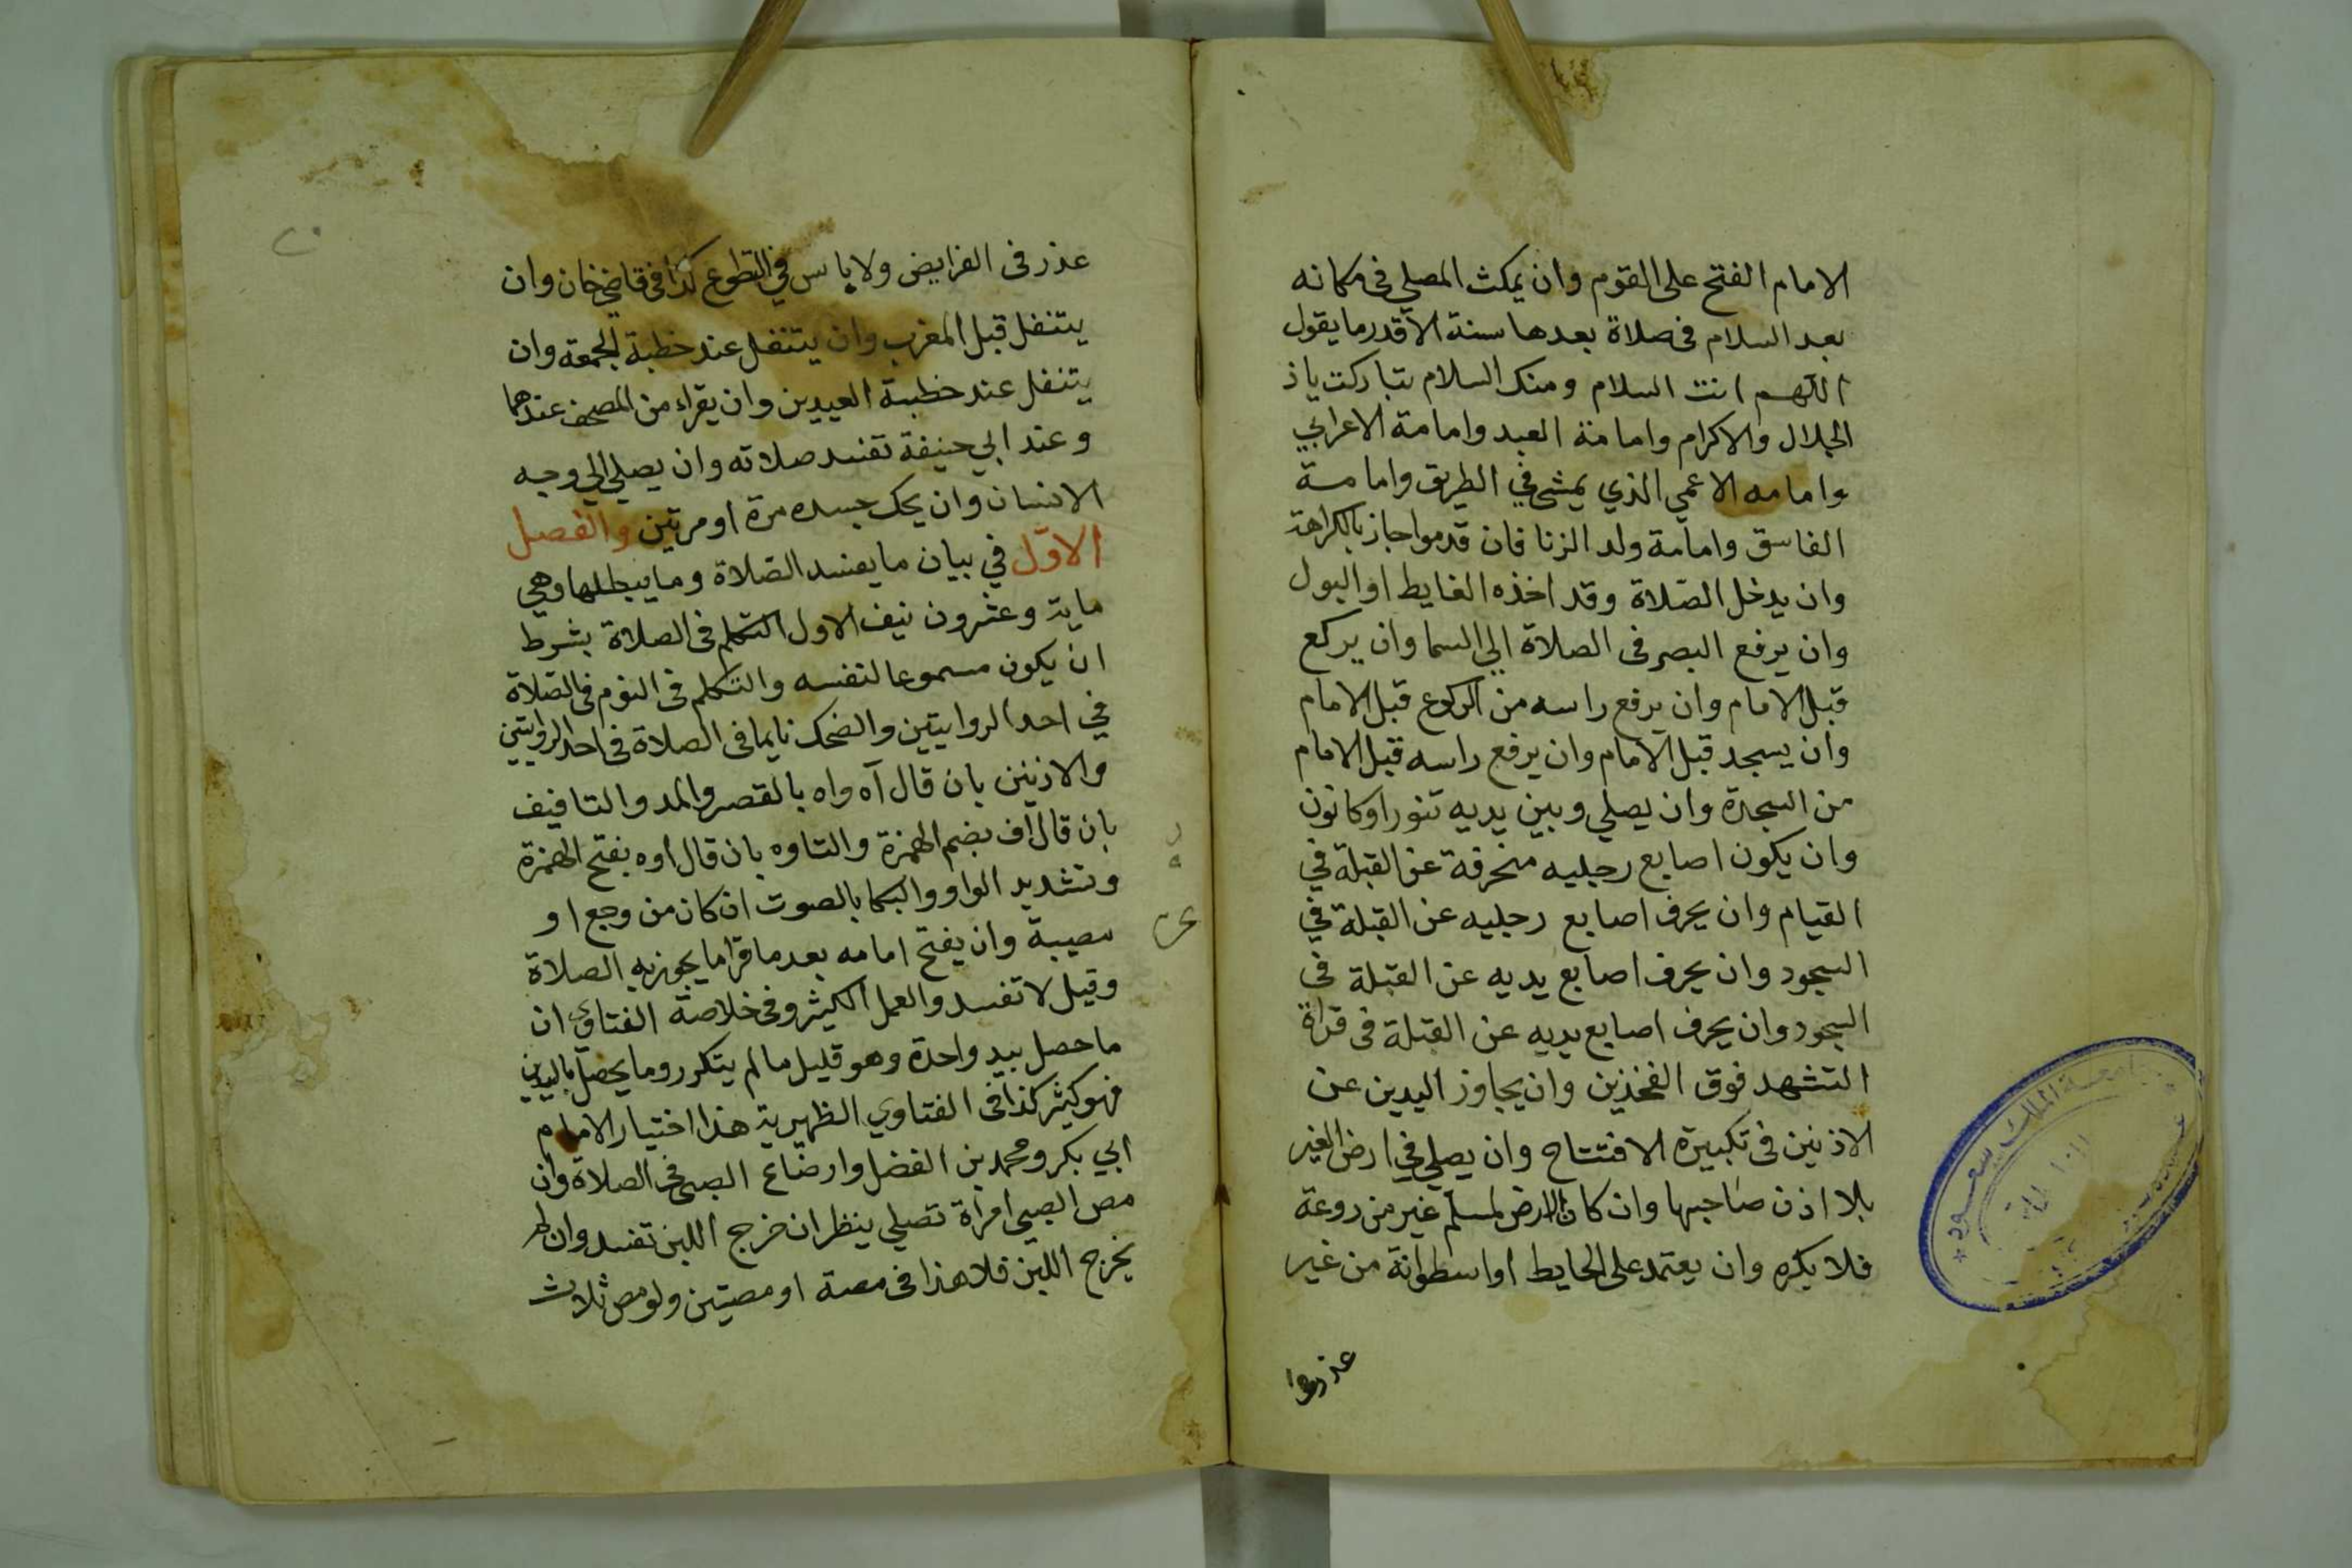 الامام الفتح على القوم وان يمكث المصلي فى مكانه
بعد السلام فى صلاة بعدها سنة الا قدر ما يقول
اللهم انت السلام ومنك السلام تباركت ياذ
الجلال والاكرام وامامة العبد وامامة الاعرابي
وامامه الاعمي الذي يمشى في الطريق وامامة
الفاسق وامامة ولد الزنا فان قدموا جاز بالكراهة
وان يدخل الصلاة وقد اخذه الغايط او البول
وان يرفع البصر فى الصلاة الي السما وان يركع
قبل الامام وان يرفع راسه من الركوع قبل الامام
وان يسجد قبل الامام وان يرفع راسه قبل الامام
من السجدة وان يصلي وبين يديه تنور او كانون
وان يكون اصابع رجليه منحرفة عن القبلة في
القيام وان يحرف اصابع رجليه عن القبلة في
السجود وان يحرف اصابع يديه عن القبلة فى
السجود وان يحرف اصابع يديه عن القبلة فى قراة
التشهد فوق الفخذين وان يجاوز اليدين عن
الاذنين فى تكبيرة الافتتاح وان يصلي في ارض الغير
بلا اذن صاحبها وان كان الارض لمسلم غير مزروعة
فلا يكره وان يعتمد على الحايط او اسطوانة من غير
عذر فى الفرايض ولا باس في التطوع كذا فى قاضي خان وان
يتنفل قبل المغرب وان يتنفل عند خطبة الجمعة وان
يتنفل عند خطبة العيدين وان يقراء من المصحف عندهما
وعند ابي حنيفة تفسد صلاته وان يصلي الي وجه
الانسان وان يحك جسده مرة او مرتين والفصل
الاول في بيان ما يفسد الصلاة وما يبطلها وهي
ماية وعشرون نيف الاول التكلم فى الصلاة بشرط
ان يكون مسموعا لنفسه والتكلم فى النوم فى الصلاة
في احد الروايتين والضحك نايما فى الصلاة فى احد الروايتين
والانين بان قال آه واه بالقصر والمد والتافيف
بان قال اف بضم الهمزة والتاوه بان قال اوه بفتح الهمزة
وتشديد الواو والبكا بالصوت ان كان من وجع او
مصيبة وان يفتح امامه بعد ما قرا ما يجوز به الصلاة
وقيل لا تفسد والعمل الكثير وفى خلاصة الفتاوي ان
ما حصل بيد واحدة وهو قليل ما لم يتكرر وما يحصل باليدين
فهو كثير كذا فى الفتاوي الظهيرية هذا اختيار الامام
ابي بكر ومحمد بن الفضل وارضاع الصبى فى الصلاة وان
مص الصبي امراة تصلي ينظر ان خرج اللبن تفسد وان لم
يخرج اللبن فلا هذا فى مصة او مصتين ولو مص ثلاث